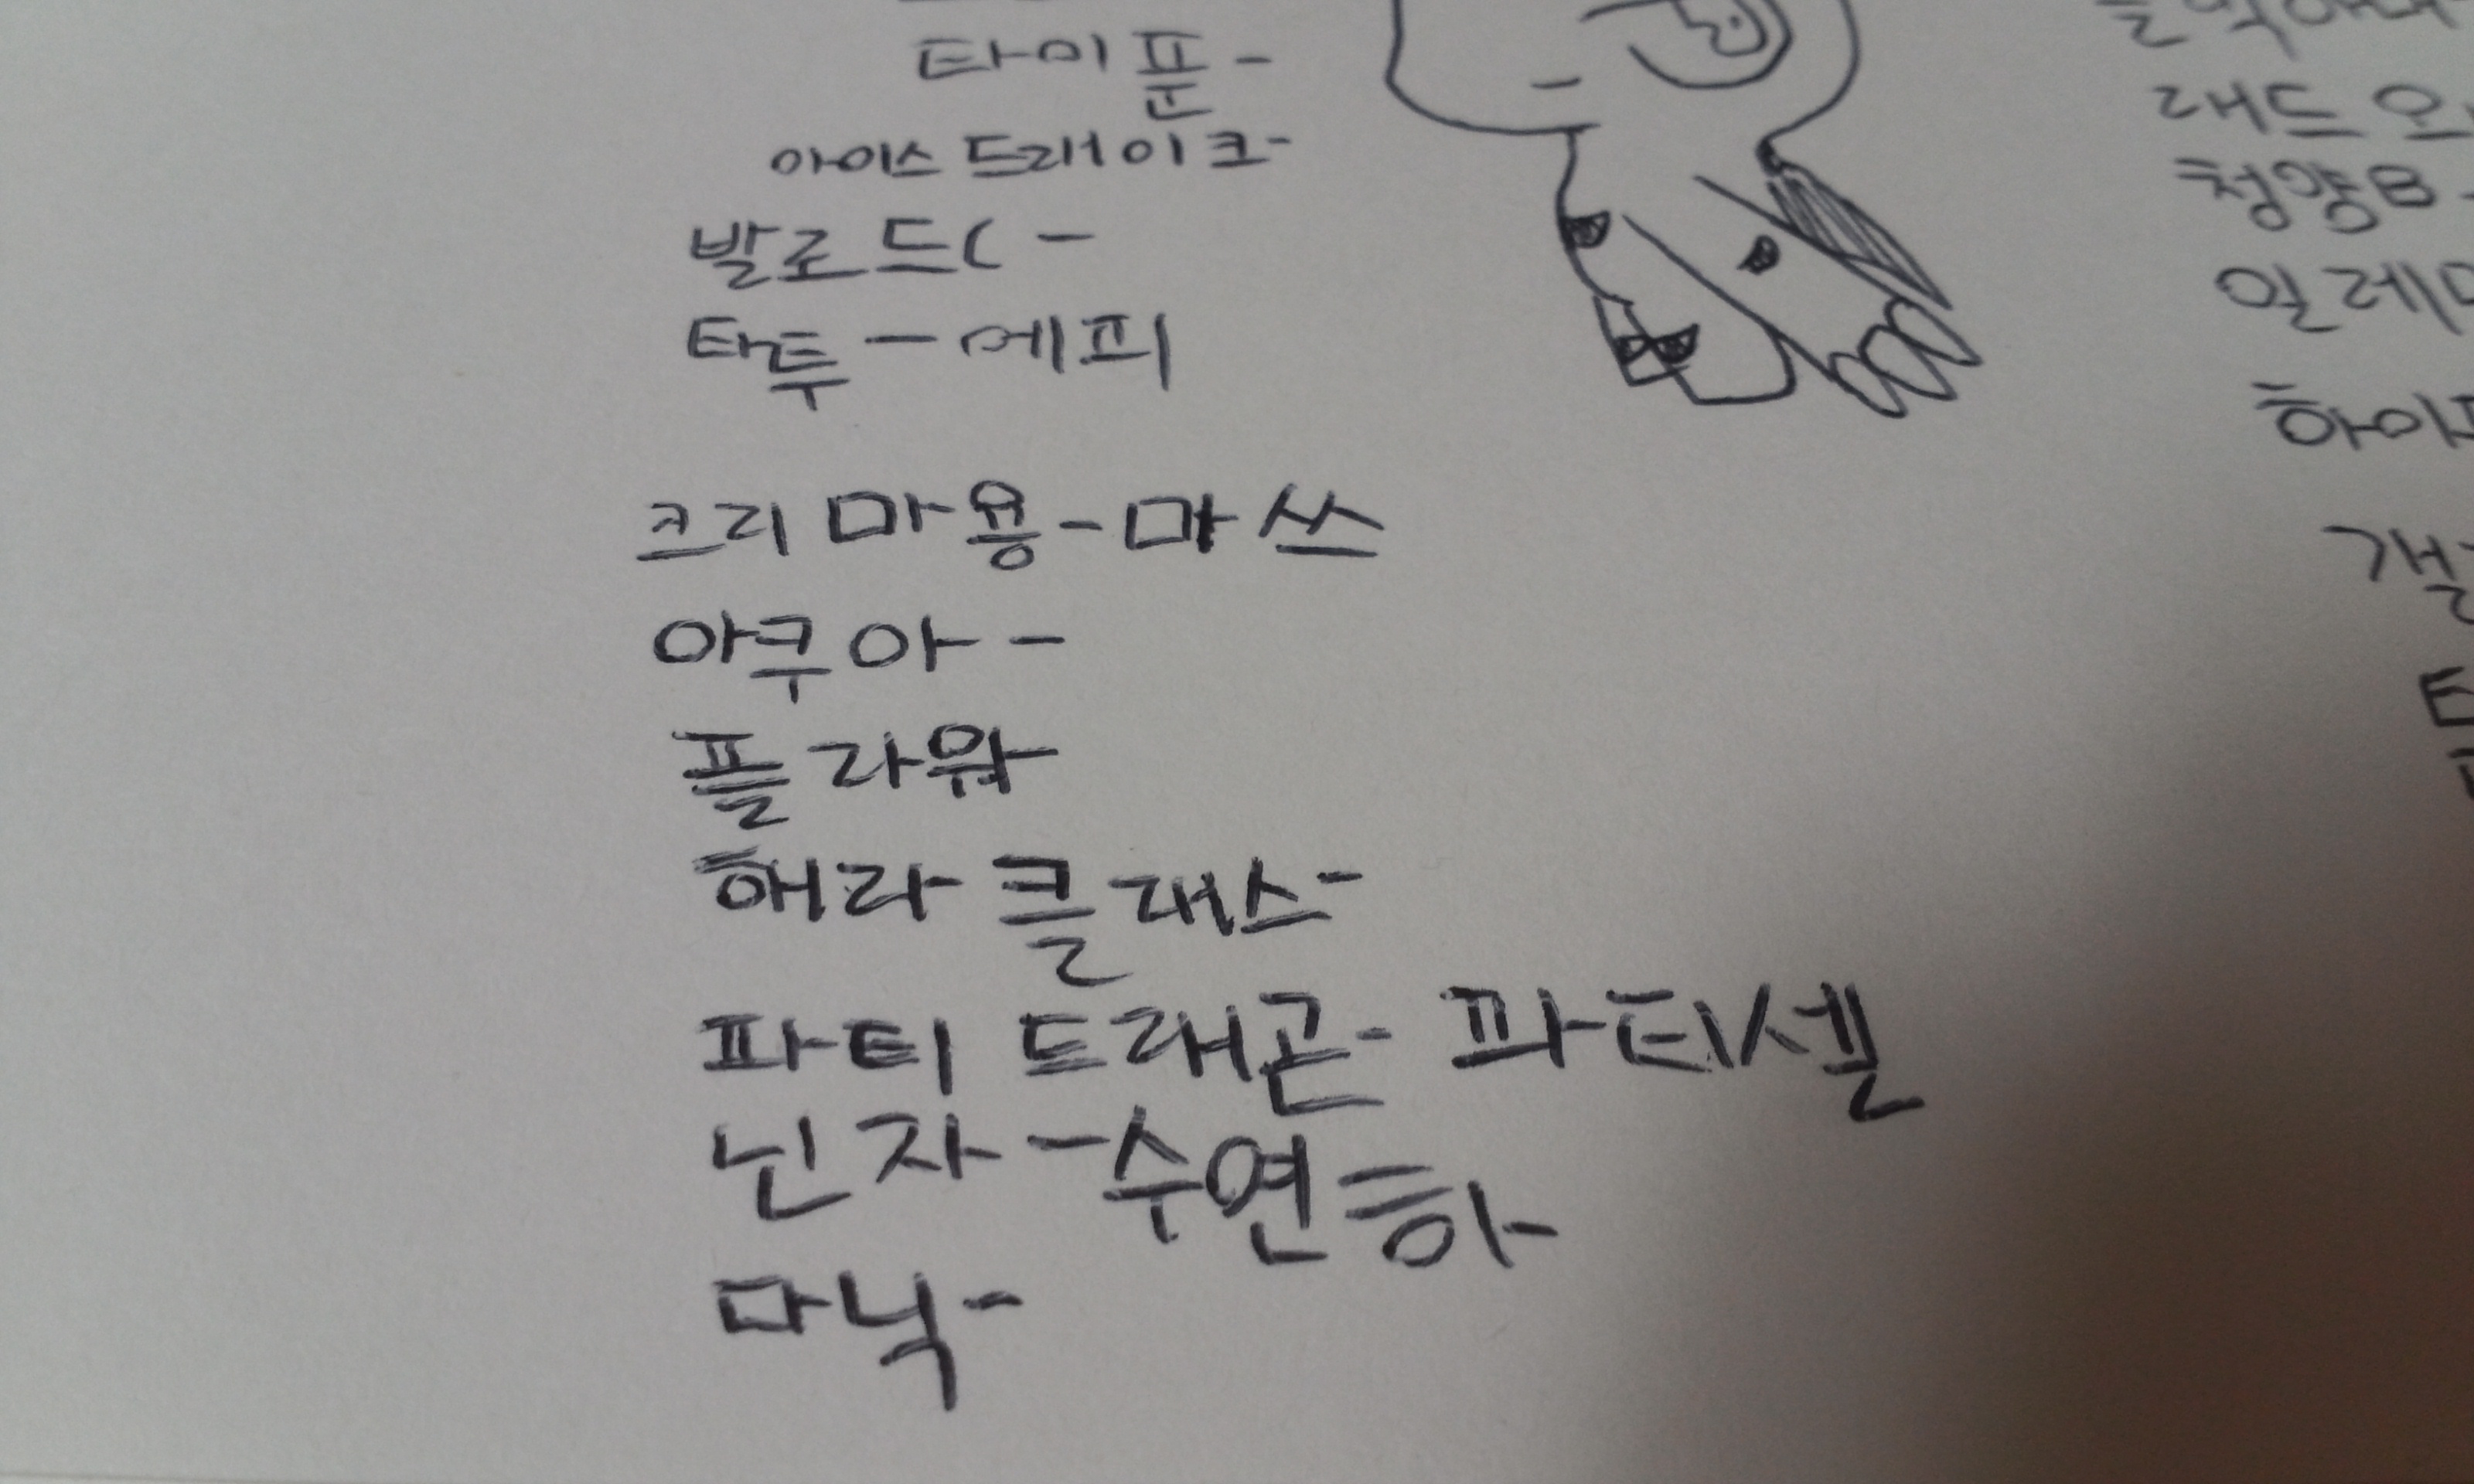 타이푼-
아이스 드래이크-
발로드(-
타투-에피
크리마용-마쓰
아쿠아-
플라워
해라클래스-
파티 드래곤-파티셀
닌자-수연하
마닉-
래드
청양B-
일레
하이